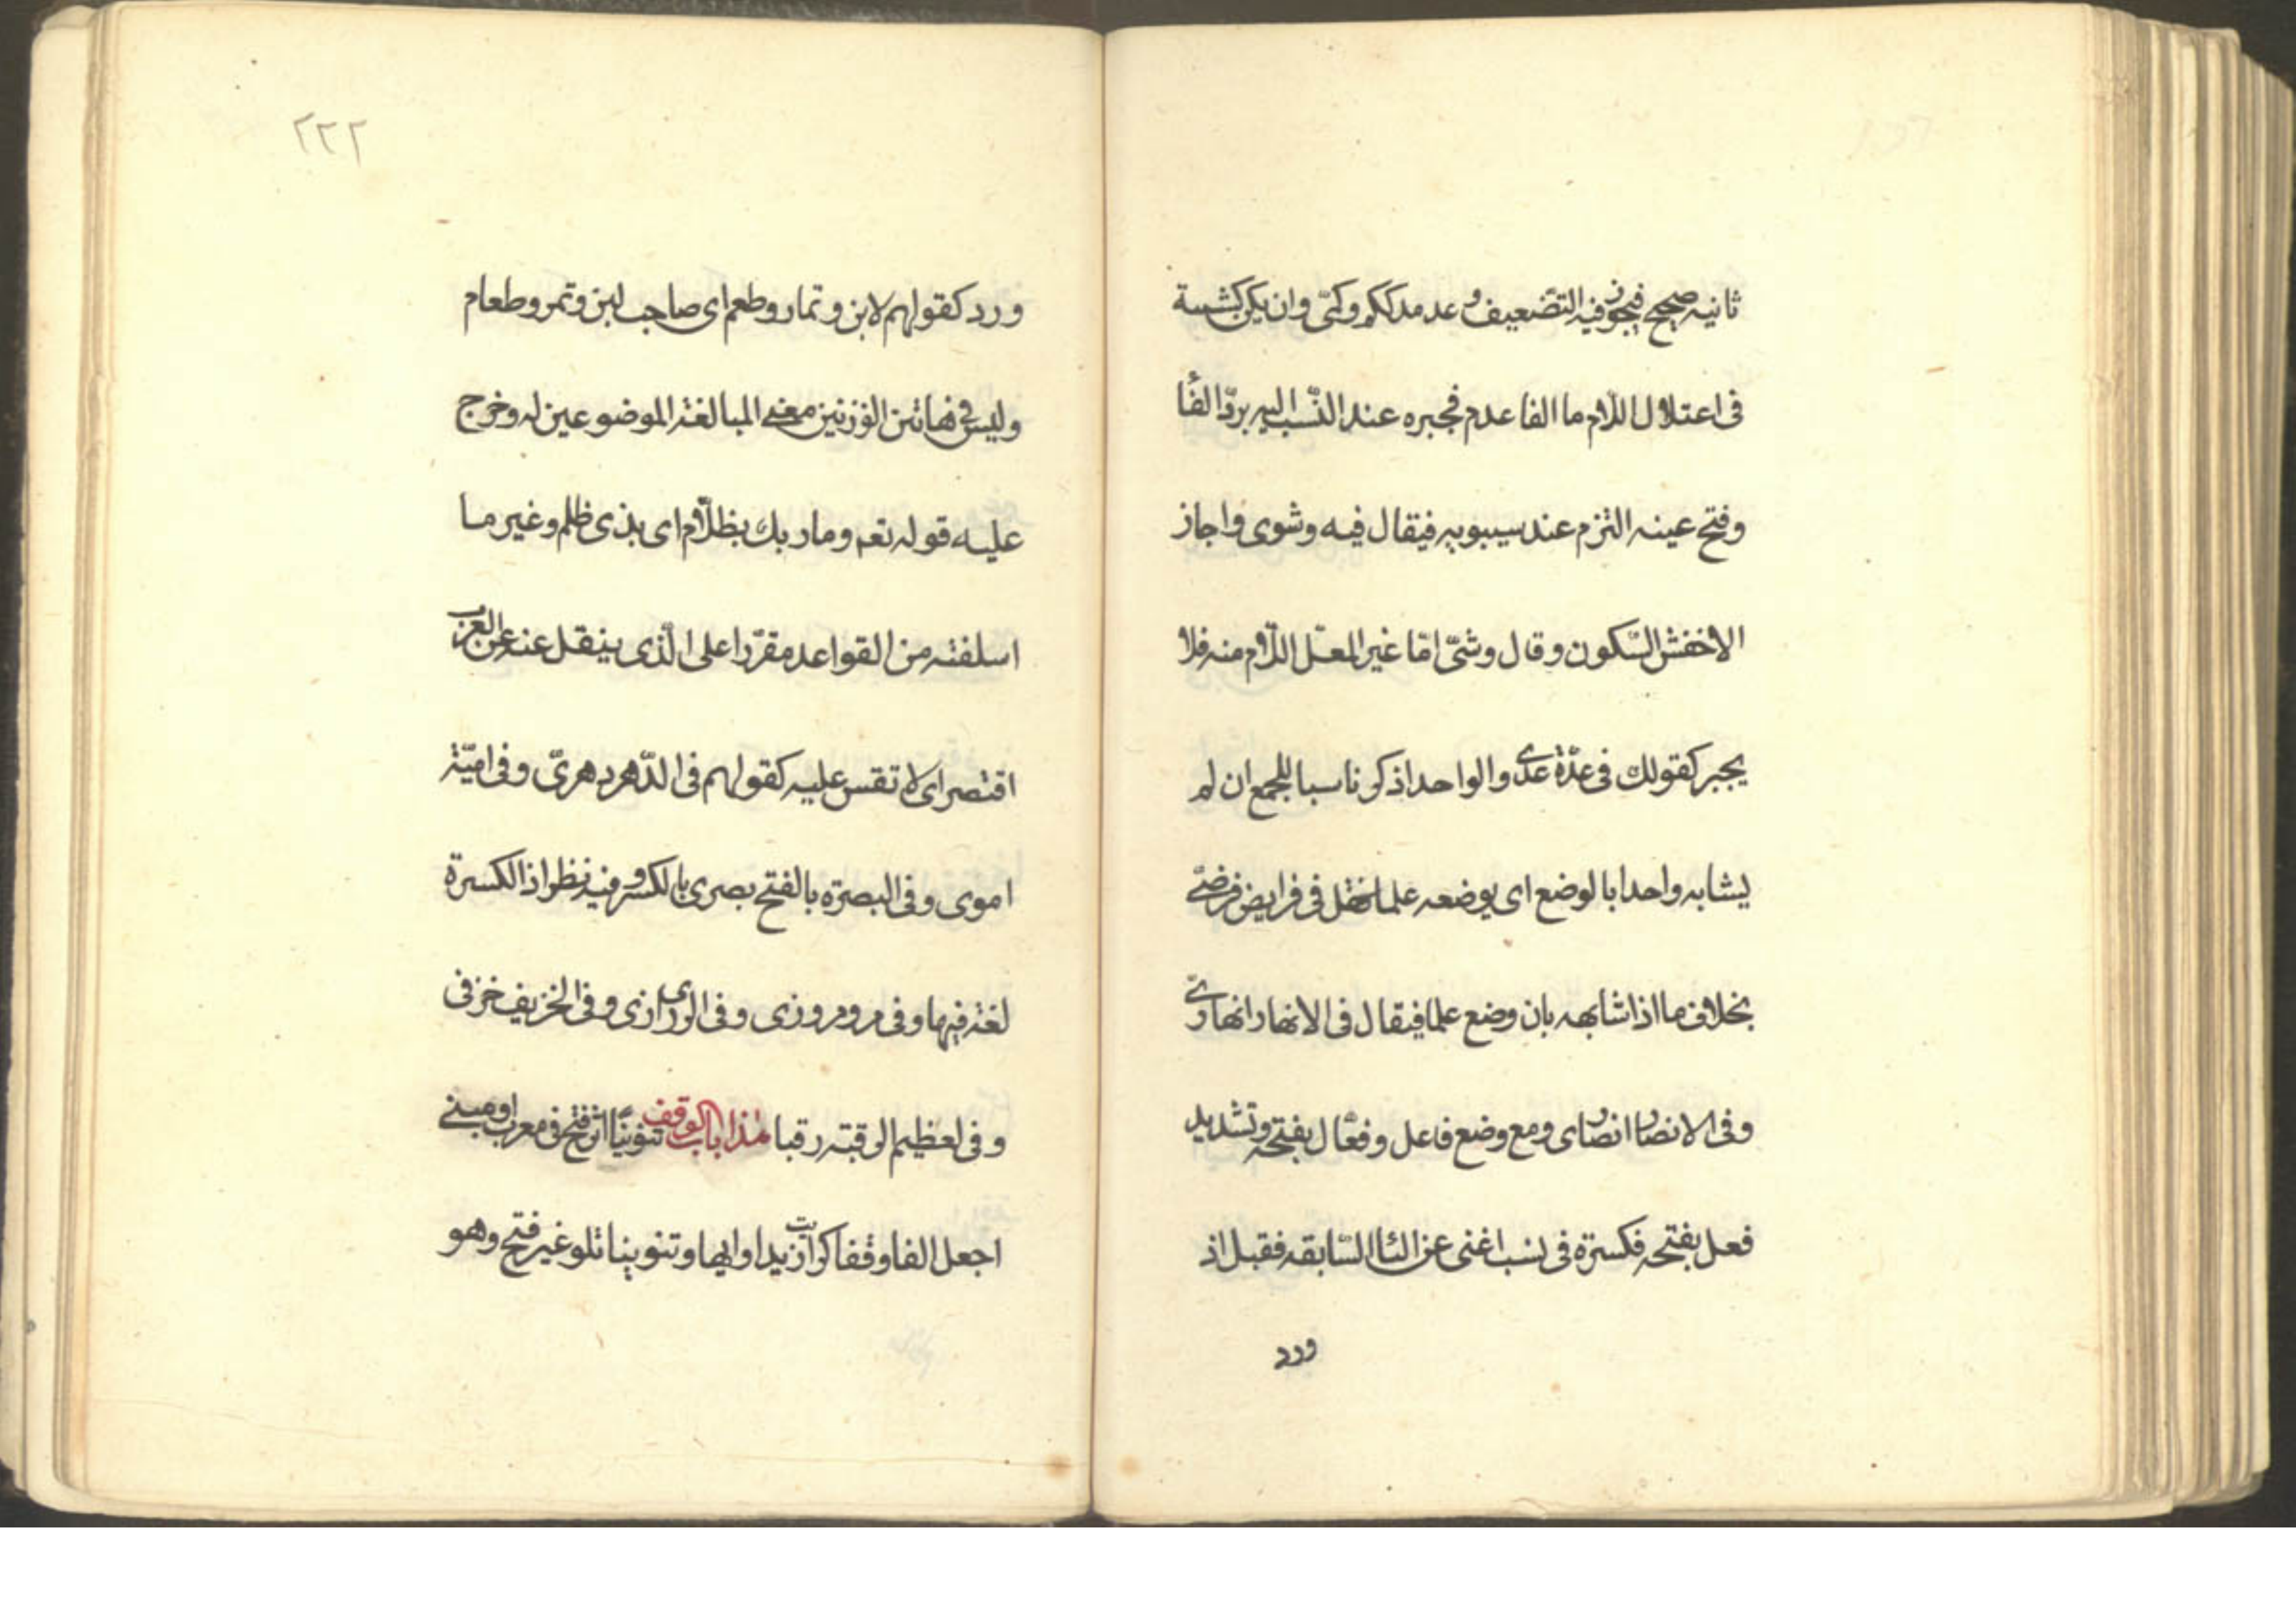 ثانيه صحيح فيجوز فيه التضعيف و عدمه ككم وكمّى وان يكن كشية
فى اعتلال اللام ما الفا عدم فجبره عند النّسب اليه بردّ الفا
وفتح عينه التزم عند سيبويه فيقال فيه وشوى واجاز
الاخفش السّكون وقال وشىّ امّا غير المعتلّ اللّام منه فلا
يجبر كقولك فى عدّة عدّى والواحد اذكر ناسبا للجمع ان لم
يشابه واحدا بالوضع اى بوضعه علما فقل فى فرايض فرضىّ
بخلاف ما اذا شابهه بان وضع علما فيقال فى الانهار انهارىّ
وفى الانصار انصارى ومع وضع فاعل وفعّال بفتحه وتشديد
فعل بفتحه فكسرة فى نسب اغنى عن اليا السّابقه فقبل اذ
ورد
٢٢٢
ورد كقولهم لابن وتمار وطعم اى صاحب لبن وتمر وطعام
وليس فى هاتين الوزنين معنى المبالغة الموضوعين له وخرج
عليه قوله تعم وما ربك بظلّام اى بذى ظلم وغير ما
اسلفته من القواعد مقرّرا على الّذى ينقل عنه عن العرب
اقتصر اى لا تقس عليه كقولهم فى الدّهر دهرىّ وفى اميّة
اموى وفى البصرة بالفتح بصرى بالكسر و فيه نظر اذ الكسرة
لغة فيها وفى مرو مروزى وفى الرى رازى وفى الخريف خرفى
وفى لعظيم الرقبة رقبا هذا باب الوقف تنوينًا اثر فتح فى معرب او مبنى
اجعل الفا وقفا كرايت زيدا وايها وتنوينا تلو غير فتح وهو